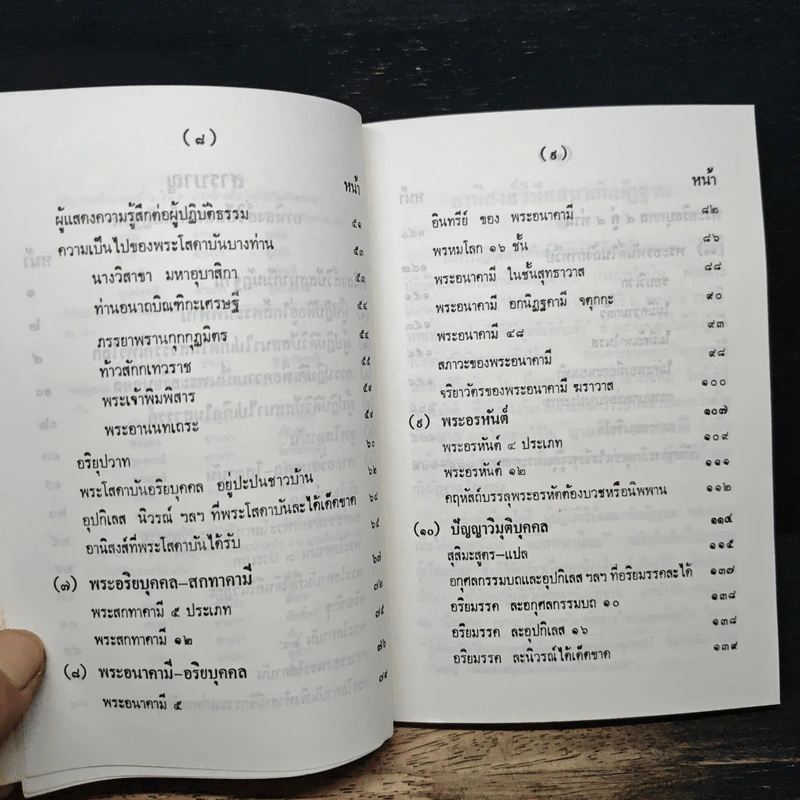 (๘)
หน้า
ผู้แสดงความรู้สึกต่อผู้ปฏิบัติธรรม ๕๑
ความเป็นไปของพระโสดาบันบางท่าน ๕๓
นางวิสาขา มหาอุบาสิกา ๕๓
ท่านอนาถบิณฑิกะเศรษฐี ๕๔
ภรรยาพรานกุกกุฏมิตร ๕๔
ท้าวสักกเทวราช ๕๕
พระเจ้าพิมพิสาร
พระอานนทเถระ
อริยุปวาท ๖๐
พระโสดาบันอริยบุคคล อยู่ปะปนชาวบ้าน ๖๒
อุปกิเลส นิวรณ์ ฯลฯ ที่พระโสดาบันละได้เด็ดขาด ๖๔
อานิสงส์ที่พระโสดาบันได้รับ ๖๕
(๗) พระอริยบุคคล-สกทาคามี ๖๗
พระสกทาคามี ๕ ประเภท ๗๒
พระสกทาคามี ๑๒ ๗๕
(๘) พระอนาคามี-อริยบุคคล ๗๖
พระอนาคามี ๕
(๙)
หน้า
อินทรีย์ ของ พระอนาคามี ๘๒
พรหมโลก ๑๖ ชั้น ๘๖
พระอนาคามี ในชั้นสุทธาวาส ๘๘
พระอนาคามี อกนิฏฐคามี จตุกกะ ๙๐
พระอนาคามี ๔๘ ๙๓
สภาวะของพระอนาคามี ๙๘
จริยาวัตรของพระอนาคามี ฆราวาส ๑๐๐
(๙) พระอรหันต์ ๑๐๗
พระอรหันต์ ๔ ประเภท ๑๐๙
พระอรหันต์ ๑๒ ๑๑๑
คฤหัสถ์บรรลุพระอรหัตต้องบวชหรือนิพพาน ๑๑๒
(๑๐) ปัญญาวิมุติบุคคล ๑๑๔
สุสิมะสูตร-แปล ๑๑๕
อกุศลกรรมบถและอุปกิเลส ฯลฯ ที่อริยมรรคละได้ ๑๓๗
อริยมรรค ละอกุศลกรรมบถ ๑๐ ๑๓๘
อริยมรรค ละอุปกิเลส ๑๖ ๑๓๘
อริยมรรค ละนิวรณ์ได้เด็ดขาด ๑๓๙